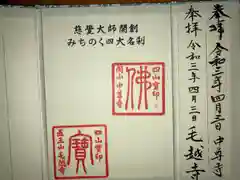 慈覺大師開創
みちのく四大名刹
四山寳印
佛
関山中尊寺
四山寳印
寳
医王山毛越寺
奉拝 令和三年四月三日 中尊寺
奉拝 令和三年四月三日 毛越寺